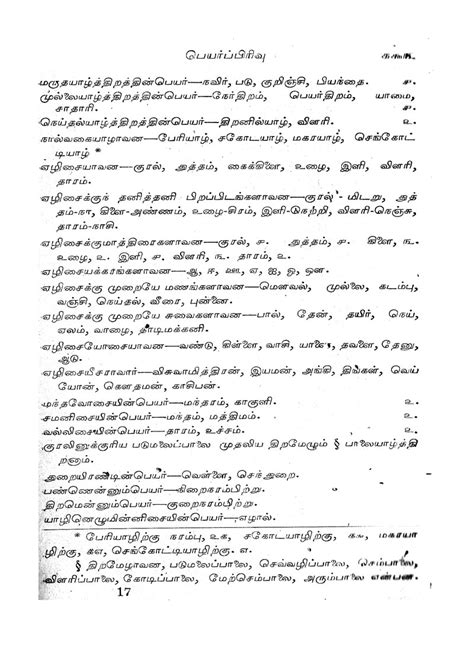 பெயர்ப்பிரிவு
மருதயாழ்த்திறத்தின்பெயர்—நவிர், படு, குறிஞ்சி, பியந்தை. ௪.
முல்லையாழ்த்திறத்தின்பெயர்—நேர்திறம், பெயர்திறம், யாமை,
சாதாரி. ௪.
நெய்தல்யாழ்த்திறத்தின்பெயர்—திறனில்யாழ், விளரி. ௨.
நால்வகையாழாவன—பேரியாழ், சகோடயாழ், மகரயாழ், செங்கோட்
டியாழ் *
ஏழிசையாவன—குரல், அத்தம், கைக்கிளை, உழை, இளி, விளரி,
தாரம்.
ஏழிசைக்குந் தனித்தனி பிறப்பிடங்களாவன—குரல் - மிடறு, அத்
தம்-நா, கிளை-அண்ணம், உழை-சிரம், இளி-நெற்றி, விளரி-நெஞ்சு,
தாரம்-நாசி.
ஏழிசைக்குமாத்திரைகளாவன—குரல், ௪. அத்தம், ௪. கிளை, ௩.
உழை, ௨. இளி, ௪. விளரி, ௩. தாரம், ௨.
ஏழிசையக்கரங்களாவன—ஆ, ஈ, ஊ, ஏ, ஐ, ஓ, ஔ.
ஏழிசைக்கு முறையே மணங்களாவன—மௌவல், முல்லை, கடம்பு,
வஞ்சி, நெய்தல், வீரை, புன்னை.
ஏழிசைக்கு முறையே சுவைகளாவன—பால், தேன், தயிர், நெய்,
ஏலம், வாழை, மாடிமக்கனி.
ஏழிசையோசையாவன—வண்டு, கிள்ளை, வாசி, யானை, தவளை, தேனு,
ஆடு.
ஏழிசையீசராவார்—விசுவாமித்திரன், இயமன், அங்கி, திங்கள், வெய்
யோன், கௌதமன், காசிபன்.
மந்தவோசையின்பெயர்—மந்தரம், காகுளி. ௨.
சமனிசையின்பெயர்—மந்தம், மத்திமம். ௨.
வல்லிசையின்பெயர்—தாரம், உச்சம். ௨.
குரலினுக்குரிய படுமலைப்பாலை முதலிய திறமேழும் § பாலையாழ்த்தி
றனாம்.
அறையிரண்டின்பெயர்—வெள்ளை, செந்அறை.
பண்ணென்னும்பெயர்—நிறைநரம்பிற்று.
திறமென்னும்பெயர்—குறைநரம்பிற்று.
யாழினெழுமின்னிசையின்பெயர்—எழால்.
* பேரியாழிற்கு நரம்பு, ௨௧, சகோடயாழிற்கு, ௧௬, மகரயா
ழிற்கு, ௧௭, செங்கோட்டியாழிற்கு. ௭.
§ திறமேழாவன, படுமலைப்பாலை, செவ்வழிப்பாலை, செம்பாலை,
விளரிப்பாலை, கோடிப்பாலை, மேற்செம்பாலை, அரும்பாலை என்பன.
17